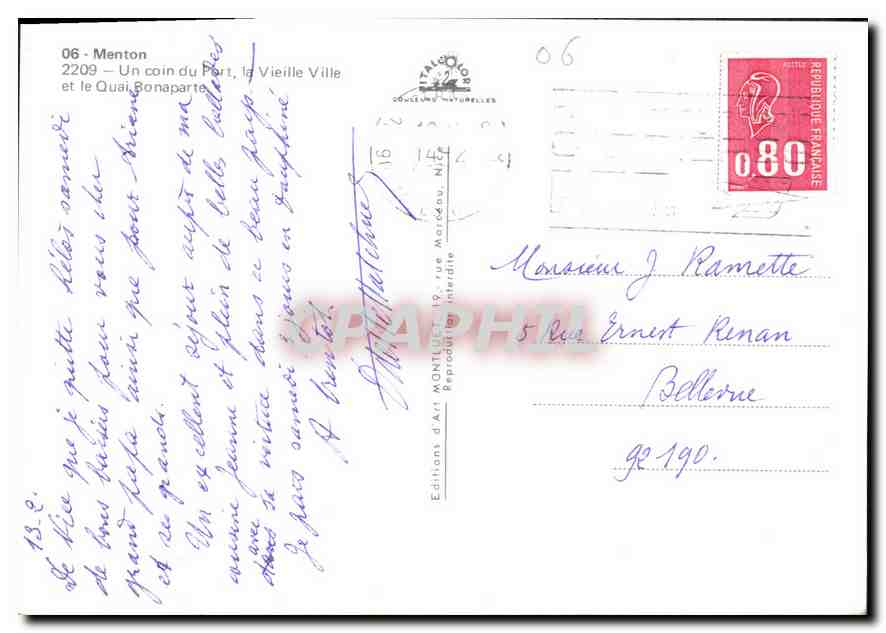 06 - Menton
2209 — Un coin du Port, la Vieille Ville
et le Quai Bonaparte
ITALCOLOR
COULEURS NATURELLES
06
POSTES
REPUBLIQUE FRANÇAISE
0,80
13-2.
De Nice que je quitte hélas samedi
de bons baisers pour vous cher
grand papa ainsi que pour Ariane
et ses grands.
Un excellent séjour auprès de ma
cousine jeanne et plein de belles ballades
avec
dans sa voiture dans ce beau pays —
Je pars samedi jours en Dauphiné
A bientôt.
Editions d'Art MONTLUET, 19, rue Marceau, Nice
Reproduction interdite
Monsieur J Ramette
5 Rue Ernest Renan
Bellevue
92190.
CPAPHIL